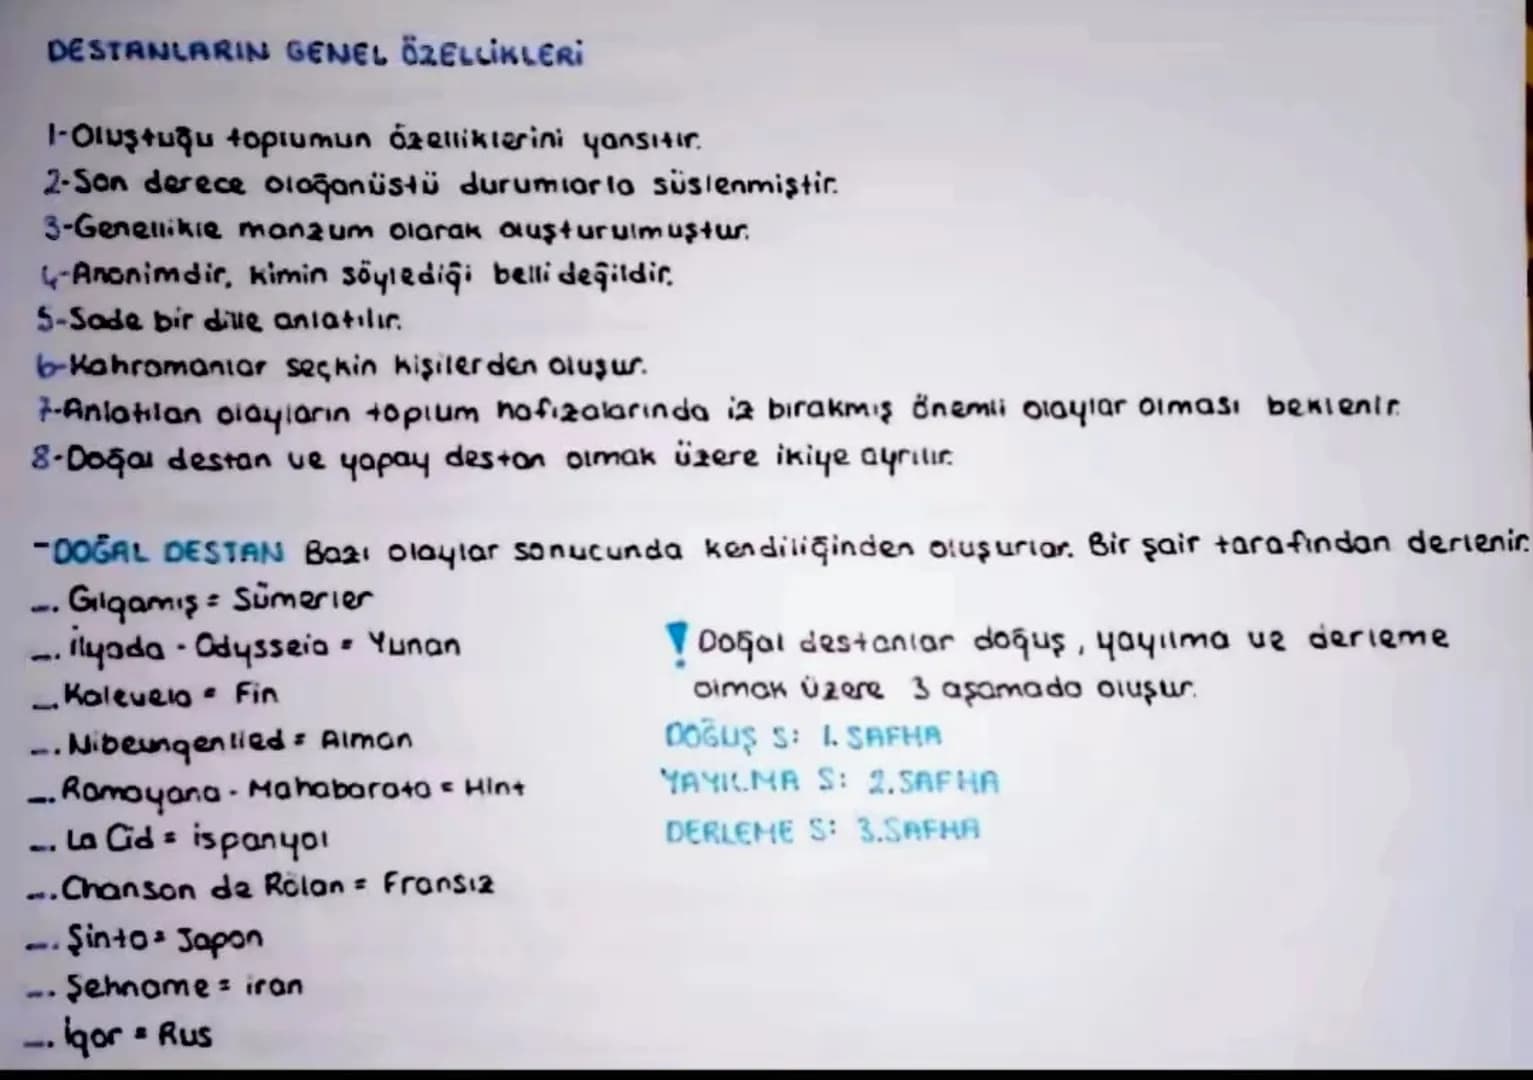 DESTANLARIN GENEL ÖZELLİKLERİ
1-Oluştuğu toplumun özelliklerini yansıtır.
2-Son derece olağanüstü durumlarla süslenmiştir.
3-Genellikle manzum olarak oluşturulmuştur.
4-Anonimdir, kimin söylediği belli değildir.
5-Sade bir dille anlatılır.
6-Kahramanlar seçkin kişilerden oluşur.
7-Anlatılan olayların toplum hafızalarında iz bırakmış önemli olaylar olması beklenir.
8-Doğal destan ve yapay destan olmak üzere ikiye ayrılır.
-DOĞAL DESTAN Bazı olaylar sonucunda kendiliğinden oluşurlar. Bir şair tarafından derlenir.
—. Gılgamış = Sümerler
—. İlyada - Odysseia = Yunan
—. Kalevela = Fin
—. Nibeungenlied = Alman
—. Ramayana - Mahabarata = Hint
—. La Cid = İspanyol
—. Chanson de Rölan = Fransız
—. Şinto = Japon
—. Şehname = İran
—. İgor = Rus
! Doğal destanlar doğuş, yayılma ve derleme
olmak üzere 3 aşamada oluşur.
DOĞUŞ S: 1. SAFHA
YAYILMA S: 2.SAFHA
DERLEME S: 3.SAFHA